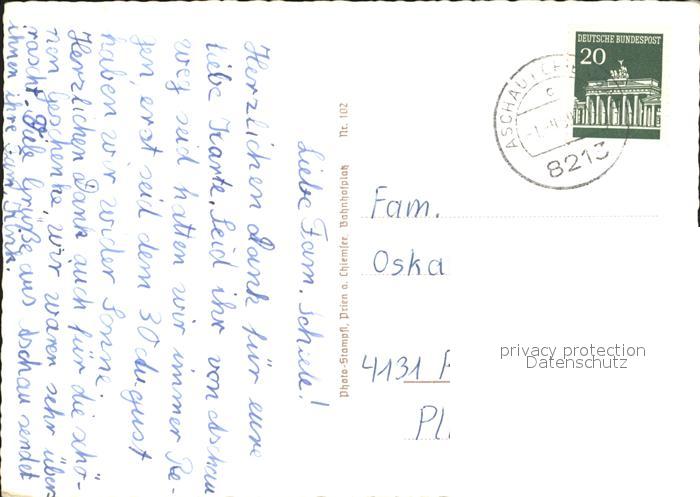 Liebe Fam. Schiele!
Herzlichen Dank für eure
liebe Karte. Seid ihr von Aschau
weg seid hatten wir immer Re-
gen, erst seid dem 30 August
haben wir wider Sonne.
Herzlichen Dank auch für die schö-
nen Geschenke, wir waren sehr über
rascht. Viele Grüße aus Aschau sendet
ihnen ihre Fam.
Photo-Stampfl, Prien a. Chiemsee, Bahnhofplatz Nr. 102
DEUTSCHE BUNDESPOST
20
ASCHAU
8213
Fam.
Oska
4131
Pl
privacy protection
Datenschutz